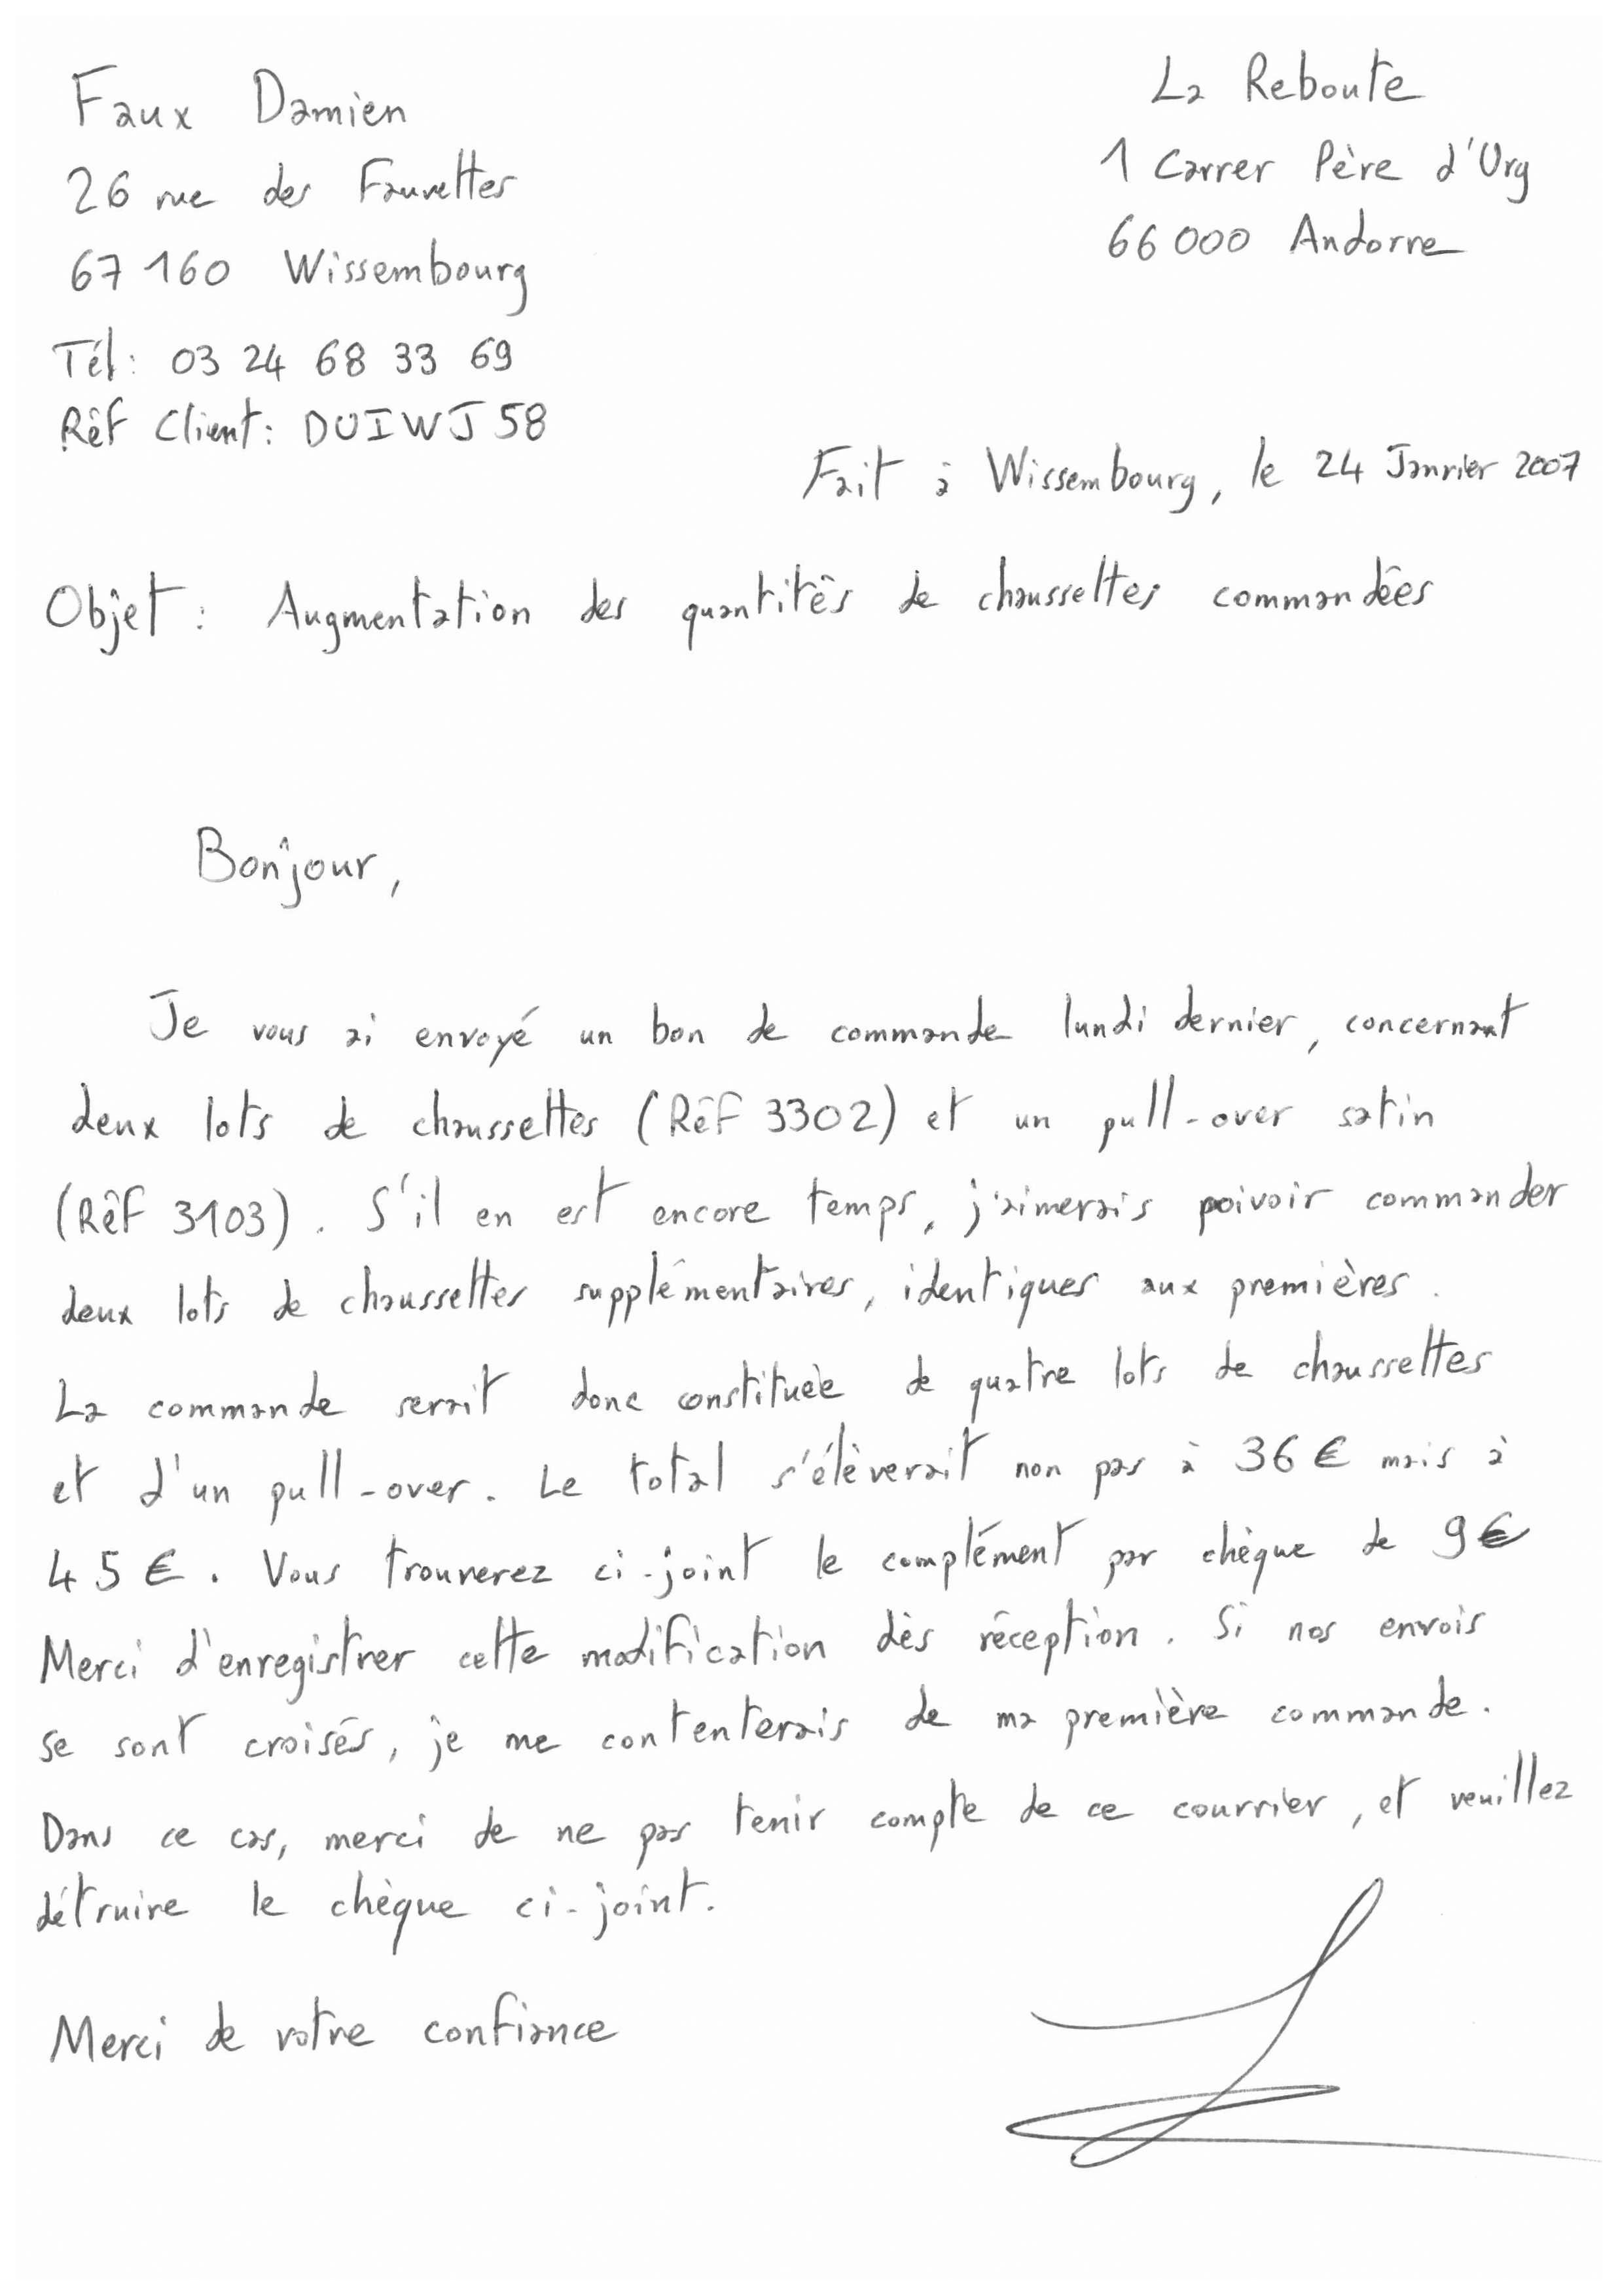 Faux Damien
26 rue des Fauvettes
67160 Wissembourg
Tél: 03 24 68 33 69
Réf Client: DUIWJ58
La Reboute
1 Carrer Père d'Urg
66000 Andorre
Fait à Wissembourg, le 24 Janvier 2007
Objet: Augmentation des quantités de chaussettes commandées
Bonjour,
Je vous ai envoyé un bon de commande lundi dernier, concernant
deux lots de chaussettes (Réf 3302) et un pull-over satin
(Réf 3103). S'il en est encore temps, j'aimerais poivoir commander
deux lots de chaussettes supplémentaires, identiques aux premières.
La commande serait donc constituée de quatre lots de chaussettes
et d'un pull-over. Le total s'élèverait non pas à 36€ mais à
45€. Vous trouverez ci-joint le complément par chèque de 9€
Merci d'enregistrer cette modification dès réception. Si nos envois
se sont croisés, je me contenterais de ma première commande.
Dans ce cas, merci de ne pas tenir compte de ce courrier, et veuillez
détruire le chèque ci-joint.
Merci de votre confiance